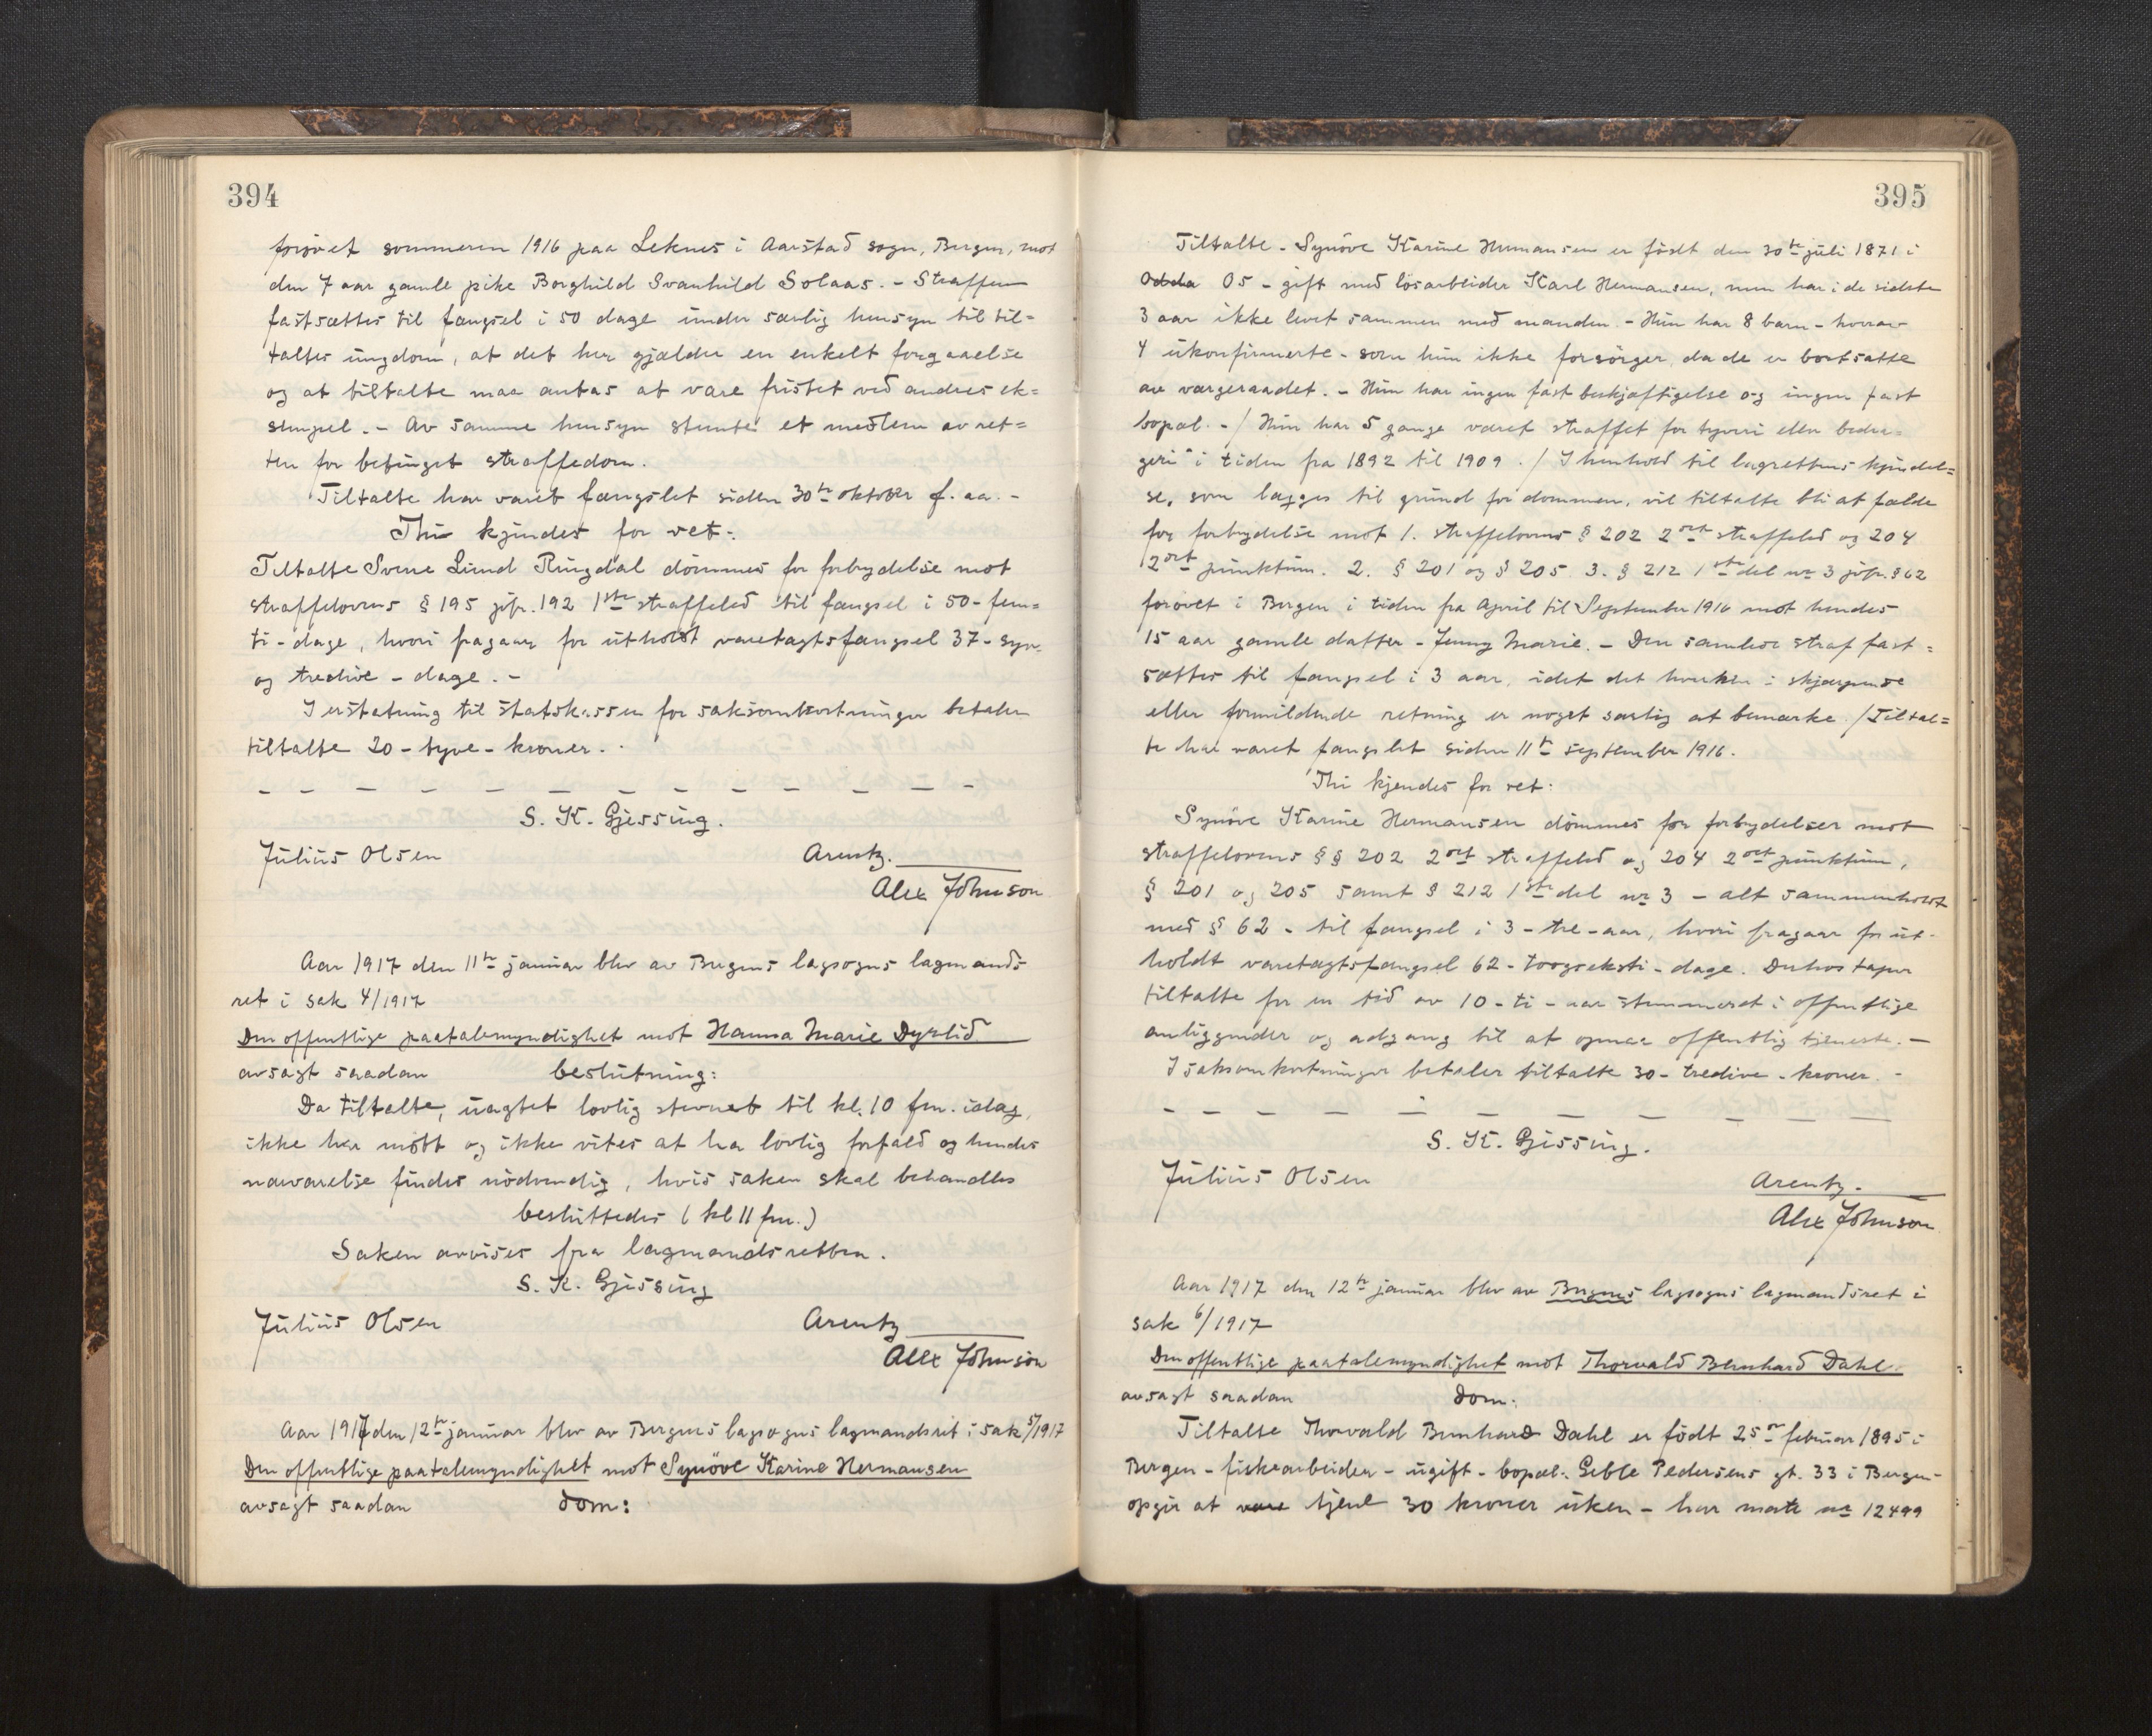 394
forøvet sommeren 1916 paa Leknes i Aarstad sogn, Bergen, mot
den 7 aar gamle pike Borghild Svanhild Solaas. - Straffen
fastsættes til fængsel i 50 dage under særlig hensyn til til=
taltes ungdom, at det her gjælder en enkelt forgaaelse
og at tiltalte maa antas at være fristet ved andres ek=
sempel. - Av samme hensyn stemte et medlem av ret=
ten for betinget straffedom.
Tiltalte har været fængslet siden 30te oktober f. aa. -
Thi kjendes for ret:
Tiltalte Sverre Lund Ringdal dömmes for forbrydelse mot
straffelovens § 195 jfr. 192 1ste straffeled til fængsel i 50 - fem=
ti - dage, hvori fragaar for utholdt varetægtsfængsel 37 - syv
og tredive - dage. -
I erstatning til statskassen for saksomkostninger betaler
tiltalte 20 - tyve - kroner. -
S. K. Gjessing.
Julius Olsen
Arentz.
Alex Johnson
Aar 1917 den 11te januar blev av Bergens lagsogns lagmands
ret i sak 4/1917
Den offentlige paatalemyndighet mot Hanna Marie Dyrlid
avsagt saadan beslutning:
Da tiltalte, uagtet lovlig stevnet til kl. 10 fm. idag,
ikke har mött og ikke vites at ha lovlig forfald og hendes
nærværelse findes nödvendig, hvis saken skal behandles
besluttedes (kl 11 fm.)
Saken avvises fra lagmandsretten.
S. K. Gjessing
Julius Olsen
Arentz
Alex Johnson
Aar 1917 den 12te januar blev av Bergens lagsogns lagmandsret i sak 5/1917
Den offentlige paatalemyndighet mot Synöve Karine Hermansen
avsagt saadan dom:
395
Tiltalte - Synöve Karine Hermansen er födt den 30te juli 1871 i
Odda Os - gift med lösarbeider Karl Hermansen, men har i de sidste
3 aar ikke levet sammen med manden. - Hun har 8 barn - hvorav
4 ukonfirmerte - som hun ikke forsörger, da de er bortsatte
av vergeraadet. - Hun har ingen fast beskjæftigelse og ingen fast
bopæl. - / Hun har 5 gange været straffet for tyveri eller bedra=
geri i tiden fra 1892 til 1909. / I henhold til lagrettens kjendel=
se, som lægges til grund for dommen, vil tiltalte bli at fælde
for forbrydelse mot 1. straffelovens § 202 2det straffeled og 204
2det punktum. 2. § 201 og § 205. 3. § 212 1ste del nr 3 jfr. § 62
forövet i Bergen i tiden fra April til September 1916 mot hendes
15 aar gamle datter - Jenny Marie. - Den samlede straf fast=
sættes til fængsel i 3 aar, idet det hverken i skjærpende
eller formildende retning er noget særlig at bemærke. / Tiltal=
te har været fængslet siden 11te september 1916.
Thi kjendes for ret:
Synöve Karine Hermansen dömmes for forbrydelser mot
straffelovens §§ 202 2det straffeled og 204 2det punktum,
§ 201 og 205 samt § 212 1ste del nr 3 - alt sammenholdt
med § 62 - til fængsel i 3 - tre - aar, hvori fragaar for ut-
holdt varetægtsfængsel 62 - toogseksti - dage. Derhos taper
tiltalte for en tid av 10 - ti - aar stemmeret i offentlige
anliggender og adgang til at opnaa offentlig tjeneste. -
I saksomkostninger betaler tiltalte 30 - tredive - kroner. -
S. K. Gjessing.
Julius Olsen
Arentz.
Alex Johnson
Aar 1917 den 12te januar blev av Bergens lagsogns lagmandsret i
sak 6/1917
Den offentlige paatalemyndighet mot Thorvald Bernhard Dahl.
avsagt saadan dom:
Tiltalte Thorvald Bernhard Dahl er födt 25de februar 1895 i
Bergen - fiskearbeider - ugift - bopæl: Geble Pedersens gt. 33 i Bergen -
opgir at være tjene 30 kroner uken - har matr nr 12499